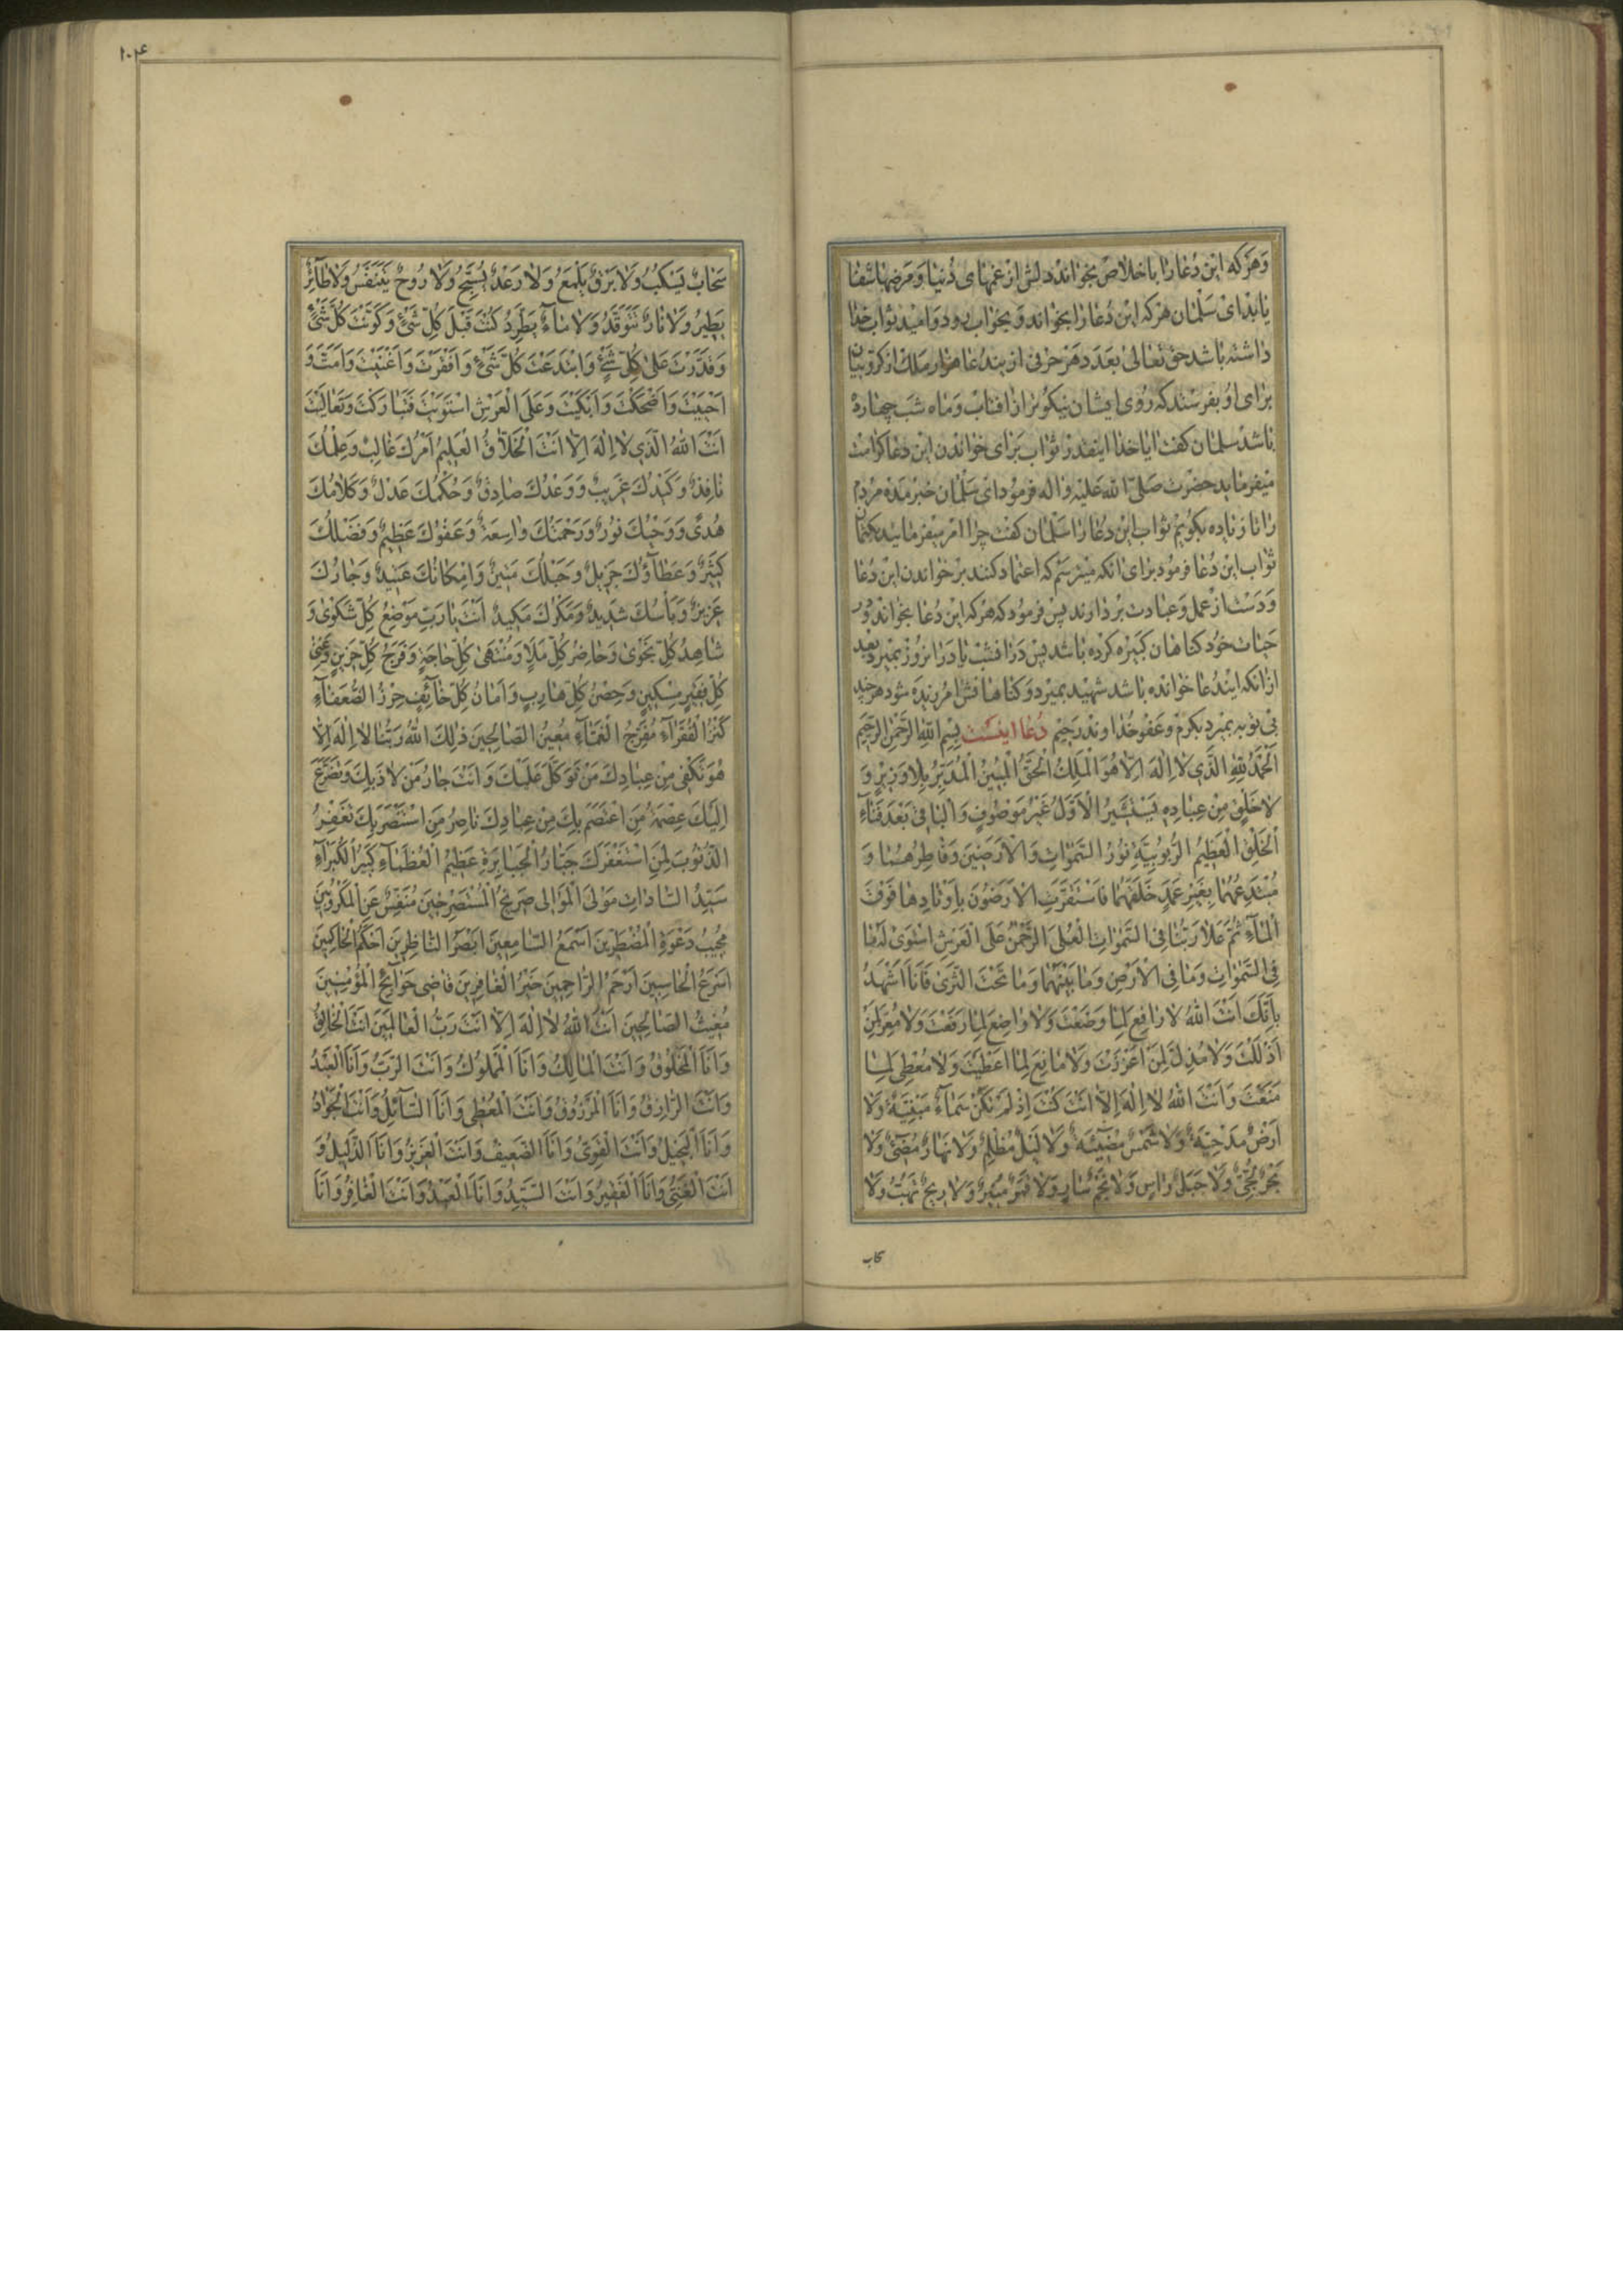 وَهَرکه این دُعا را با خلاص بخواند دلش از غمهای دُنیا و مَرضها شفا
یابد ای سَلمان هرکه این دُعا را بخواند و بخواب رود و امید ثواب خدا
داشته باشد حق تعالی بعَدَد هَر حرفی از ایندُعا هزار ملک از کرّوبیان
برای اوُ بفرستد که رُوی ایشان نیکوتر از افتاب و ماه شب چهارده
باشد سلمان کفت ایا خدا اینقدر ثواب برای خواندن این دعا کرامت
میفرماید حضرت صَلّی الله عَلیه واله فرمود ای سَلمان خبر مده مردم
را تا زیاده بکویم ثواب این دعا را سَلمان کفت چرا امر میفرمائید بکتمان
ثواب این دُعا فرمود برای انکه میترسَم که اعتماد کنند بر خواندن این دُعا
وَدَست از عمل و عبادت بردارند پس فرمود که هرکه این دُعا بخواند و در
حیات خود کناهان کبیره کرده باشد پس دَرانشب یا دَرانروز بمیرد بعد
ازانکه ایندُعا خوانده باشد شهید بمیرد و کناهانش امرزیده شود هرچند
بی توبه بمیرد بکرم و عفو خُداوند رَحیم دُعا اینست بِسْمِ اللهِ الرَّحْمنِ الرَّحیمِ
اَلْحَمْدُ لِلّهِ الَّذی لا اِلهَ اِلّا هُوَ الْمَلِكُ الْحَقُّ الْمُبینُ الْمُدَبِّرُ بِلا وَزیرٍ وَ
لا خَلْقٍ مِنْ عِبادِهِ یَسْتَشیرُ الْاَوَّلُ غَیْرُ مَوْصُوفٍ وَالْباقی بَعْدَ فَناءِ
الْخَلْقِ الْعَظیمُ الرُّبُوبِیَّةِ نُورُ السَّمواتِ وَالْاَرَضینَ وَفاطِرُهُما وَ
مُبْتَدِعُهُما بِغَیْرِ عَمَدٍ خَلَقَهُما فَاسْتَقَرَّتِ الْاَرَضُونَ بِاَوْتادِها فَوْقَ
الْماءِ ثُمَّ عَلا رَبُّنا فِی السَّمواتِ الْعُلی اَلرَّحْمنُ عَلَی الْعَرْشِ اسْتَوی لَهُ ما
فِی السَّمواتِ وَما فِی الْاَرْضِ وَما بَیْنَهُما وَما تَحْتَ الثَّری فَاَنَا اَشْهَدُ
بِاَنَّكَ اَنْتَ اللهُ لا رافِعَ لِما وَضَعْتَ وَلا واضِعَ لِما رَفَعْتَ وَلا مُعِزَّ لِمَنْ
اَذْلَلْتَ وَلا مُذِلَّ لِمَنْ اَعْزَزْتَ وَلا مانِعَ لِما اَعْطَیْتَ وَلا مُعْطِیَ لِما
مَنَعْتَ وَاَنْتَ اللهُ لا اِلهَ اِلّا اَنْتَ كُنْتَ اِذْ لَمْ تَكُنْ سَماءٌ مَبْنِیَّةٌ وَلا
اَرْضٌ مَدْحِیَّةٌ وَلا شَمْسٌ مُضیئَةٌ وَلا لَیْلٌ مُظْلِمٌ وَلا نَهارٌ مُضیءٌ وَلا
بَحْرٌ لُجِّیٌّ وَلا جَبَلٌ راسٍ وَلا نَجْمٌ سارٍ وَلا قَمَرٌ مُنیرٌ وَلا ریحٌ تَهُبُّ وَلا
۱۰۴
سَحابٌ یَسْكُبُ وَلا بَرْقٌ یَلْمَعُ وَلا رَعْدٌ یُسَبِّحُ وَلا رُوحٌ یَتَنَفَّسُ وَلا طائِرٌ
یَطیرُ وَلا نارٌ تَتَوَقَّدُ وَلا ماءٌ یَطَّرِدُ كُنْتَ قَبْلَ كُلِّ شَیْءٍ وَكَوَّنْتَ كُلَّ شَیْءٍ
وَقَدَرْتَ عَلی كُلِّ شَیْءٍ وَابْتَدَعْتَ كُلَّ شَیْءٍ وَاَفْقَرْتَ وَاَغْنَیْتَ وَاَمَتَّ وَ
اَحْیَیْتَ وَاَضْحَكْتَ وَاَبْكَیْتَ وَعَلَی الْعَرْشِ اسْتَوَیْتَ فَتَبارَكْتَ وَتَعالَیْتَ
اَنْتَ اللهُ الَّذی لا اِلهَ اِلّا اَنْتَ الْخَلّاقُ الْعَلیمُ اَمْرُكَ غالِبٌ وَعِلْمُكَ
نافِذٌ وَكَیْدُكَ غَریبٌ وَوَعْدُكَ صادِقٌ وَحُكْمُكَ عَدْلٌ وَكَلامُكَ
هُدیً وَوَحْیُكَ نُورٌ وَرَحْمَتُكَ واسِعَةٌ وَعَفْوُكَ عَظیمٌ وَفَضْلُكَ
كَثیرٌ وَعَطاؤُكَ جَزیلٌ وَحَبْلُكَ مَتینٌ وَاِمْكانُكَ عَتیدٌ وَجارُكَ
عَزیزٌ وَبَاْسُكَ شَدیدٌ وَمَكْرُكَ مَكیدٌ اَنْتَ یا رَبِّ مَوْضِعُ كُلِّ شَكْوی وَ
شاهِدُ كُلِّ نَجْوی وَحاضِرُ كُلِّ مَلَاٍ وَمُنْتَهی كُلِّ حاجَةٍ وَفَرَجُ كُلِّ حَزینٍ وَغِنی
كُلِّ فَقیرٍ مِسْكینٍ وَحِصْنُ كُلِّ هارِبٍ وَاَمانُ كُلِّ خائِفٍ حِرْزُ الضُّعَفاءِ
كَنْزُ الْفُقَراءِ مُفَرِّجُ الْغَمّاءِ مُعینُ الصّالِحینَ ذلِكَ اللهُ رَبُّنا لا اِلهَ اِلّا
هُوَ تَكْفی مِنْ عِبادِكَ مَنْ تَوَكَّلَ عَلَیْكَ وَاَنْتَ جارُ مَنْ لاذَ بِكَ وَتَضَرَّعَ
اِلَیْكَ عِصْمَةُ مَنِ اعْتَصَمَ بِكَ مِنْ عِبادِكَ ناصِرُ مَنِ اسْتَنْصَرَ بِكَ تَغْفِرُ
الذُّنُوبَ لِمَنِ اسْتَغْفَرَكَ جَبّارُ الْجَبابِرَةِ عَظیمُ الْعُظَماءِ كَبیرُ الْكُبَراءِ
سَیِّدُ السّاداتِ مَوْلَی الْمَوالی صَریخُ الْمُسْتَصْرِخینَ مُنَفِّسٌ عَنِ الْمَكْرُوبینَ
مُجیبُ دَعْوَةِ الْمُضْطَرّینَ اَسْمَعُ السّامِعینَ اَبْصَرُ النّاظِرینَ اَحْكَمُ الْحاكِمینَ
اَسْرَعُ الْحاسِبینَ اَرْحَمُ الرّاحِمینَ خَیْرُ الْغافِرینَ قاضی حَوائِجِ الْمُؤْمِنینَ
مُغیثُ الصّالِحینَ اَنْتَ اللهُ لا اِلهَ اِلّا اَنْتَ رَبُّ الْعالَمینَ اَنْتَ الْخالِقُ
وَاَنَا الْمَخْلُوقُ وَاَنْتَ الْمالِكُ وَاَنَا الْمَمْلُوكُ وَاَنْتَ الرَّبُّ وَاَنَا الْعَبْدُ
وَاَنْتَ الرّازِقُ وَاَنَا الْمَرْزُوقُ وَاَنْتَ الْمُعْطی وَاَنَا السّائِلُ وَاَنْتَ الْجَوادُ
وَاَنَا الْبَخیلُ وَاَنْتَ الْقَوِیُّ وَاَنَا الضَّعیفُ وَاَنْتَ الْعَزیزُ وَاَنَا الذَّلیلُ وَ
اَنْتَ الْغَنِیُّ وَاَنَا الْفَقیرُ وَاَنْتَ السَّیِّدُ وَاَنَا الْعَبْدُ وَاَنْتَ الْغافِرُ وَاَنَا